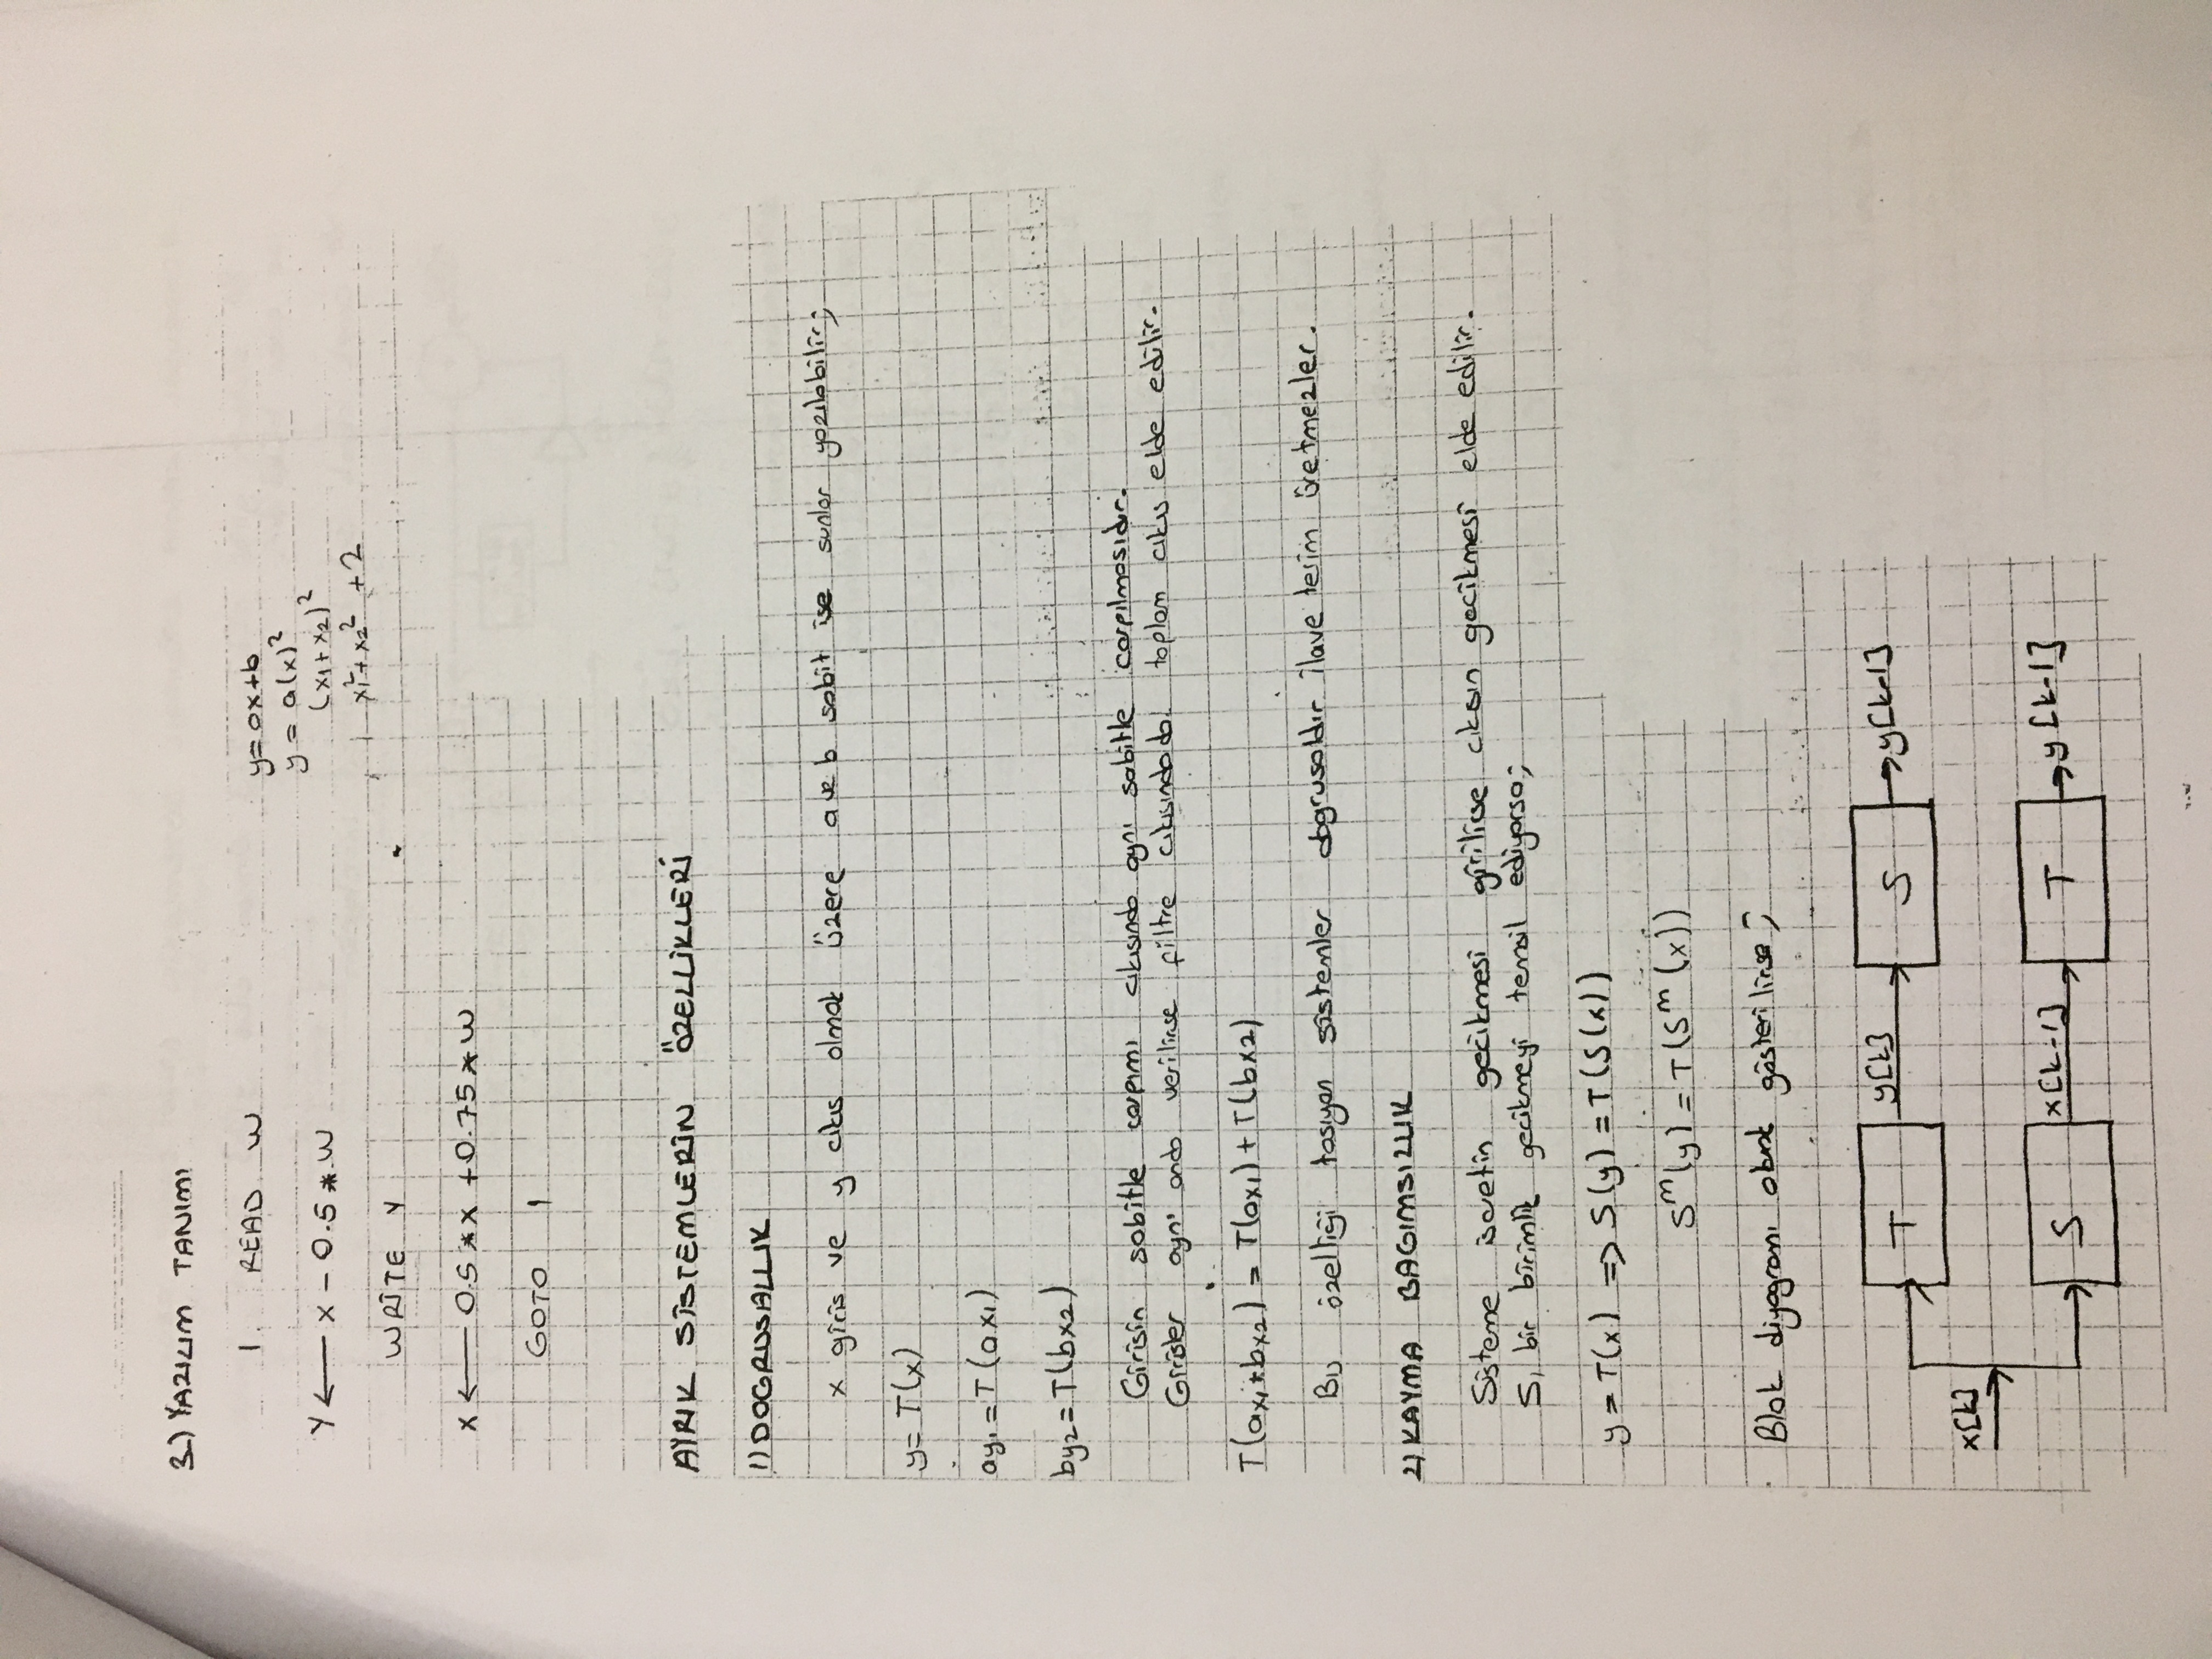 3.) YAZILIM TANIMI
1. READ W
Y ← X - 0.5 * W
WRİTE Y
X ← 0.5 * X + 0.75 * W
GOTO 1
y = ax+b
y = a(x)²
(x₁+x₂)²
x₁²+x₂² +2
AYRIK SİSTEMLERİN ÖZELLİKLERİ
1) DOGRUSALLIK
x giris ve y cıkıs olmak üzere a ve b sabit ise sunlar yazılabilir;
y = T(x)
ay₁ = T(ax₁)
by₂ = T(bx₂)
Girisin sabitle carpımı cıkısında aynı sabitle carpılmasıdır.
Girisler aynı anda verilirse filtre cıkısındada toplam cıkıs elde edilir.
T(ax₁+bx₂) = T(ax₁) + T(bx₂)
Bu özelliği tasıyan sistemler dogrusaldır ilave terim üretmezler.
2) KAYMA BAGIMSIZLIK
Sisteme isaretin gecikmesi girilirse cıkısın gecikmesi elde edilir.
S, bir birimlik gecikmeyi temsil ediyorsa;
y = T(x) => S(y) = T(S(x))
Sᵐ(y) = T(Sᵐ(x))
Blok diyagramı olarak gösterilirse;
T y[k] S y[k-1]
x[k]
S x[k-1] T y[k-1]